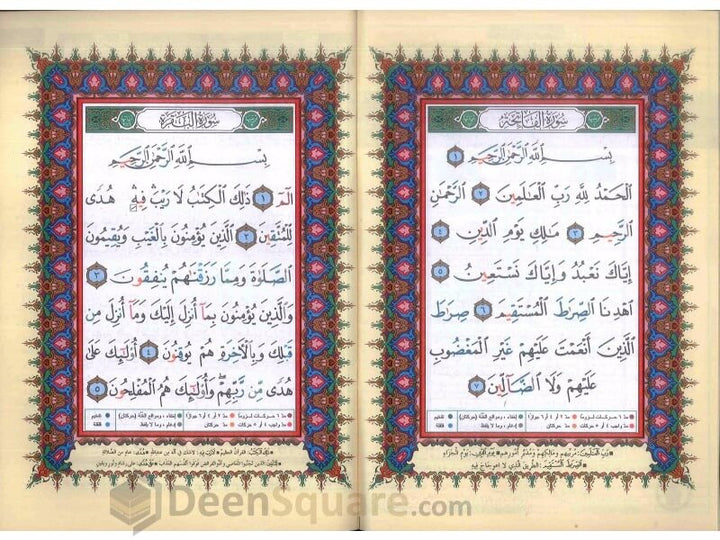 سورة الفاتحة
بِسْمِ اللَّهِ الرَّحْمَٰنِ الرَّحِيمِ ١
الْحَمْدُ لِلَّهِ رَبِّ الْعَالَمِينَ ٢ الرَّحْمَٰنِ
الرَّحِيمِ ٣ مَالِكِ يَوْمِ الدِّينِ ٤
إِيَّاكَ نَعْبُدُ وَإِيَّاكَ نَسْتَعِينُ ٥
اهْدِنَا الصِّرَاطَ الْمُسْتَقِيمَ ٦ صِرَاطَ
الَّذِينَ أَنْعَمْتَ عَلَيْهِمْ غَيْرِ الْمَغْضُوبِ
عَلَيْهِمْ وَلَا الضَّالِّينَ ٧
سورة البقرة
بِسْمِ اللَّهِ الرَّحْمَٰنِ الرَّحِيمِ
الم ١ ذَٰلِكَ الْكِتَابُ لَا رَيْبَ فِيهِ هُدًى
لِّلْمُتَّقِينَ ٢ الَّذِينَ يُؤْمِنُونَ بِالْغَيْبِ وَيُقِيمُونَ
الصَّلَاةَ وَمِمَّا رَزَقْنَاهُمْ يُنفِقُونَ ٣
وَالَّذِينَ يُؤْمِنُونَ بِمَا أُنزِلَ إِلَيْكَ وَمَا أُنزِلَ مِن
قَبْلِكَ وَبِالْآخِرَةِ هُمْ يُوقِنُونَ ٤ أُولَٰئِكَ عَلَىٰ
هُدًى مِّن رَّبِّهِمْ وَأُولَٰئِكَ هُمُ الْمُفْلِحُونَ ٥
DeenSquare.com